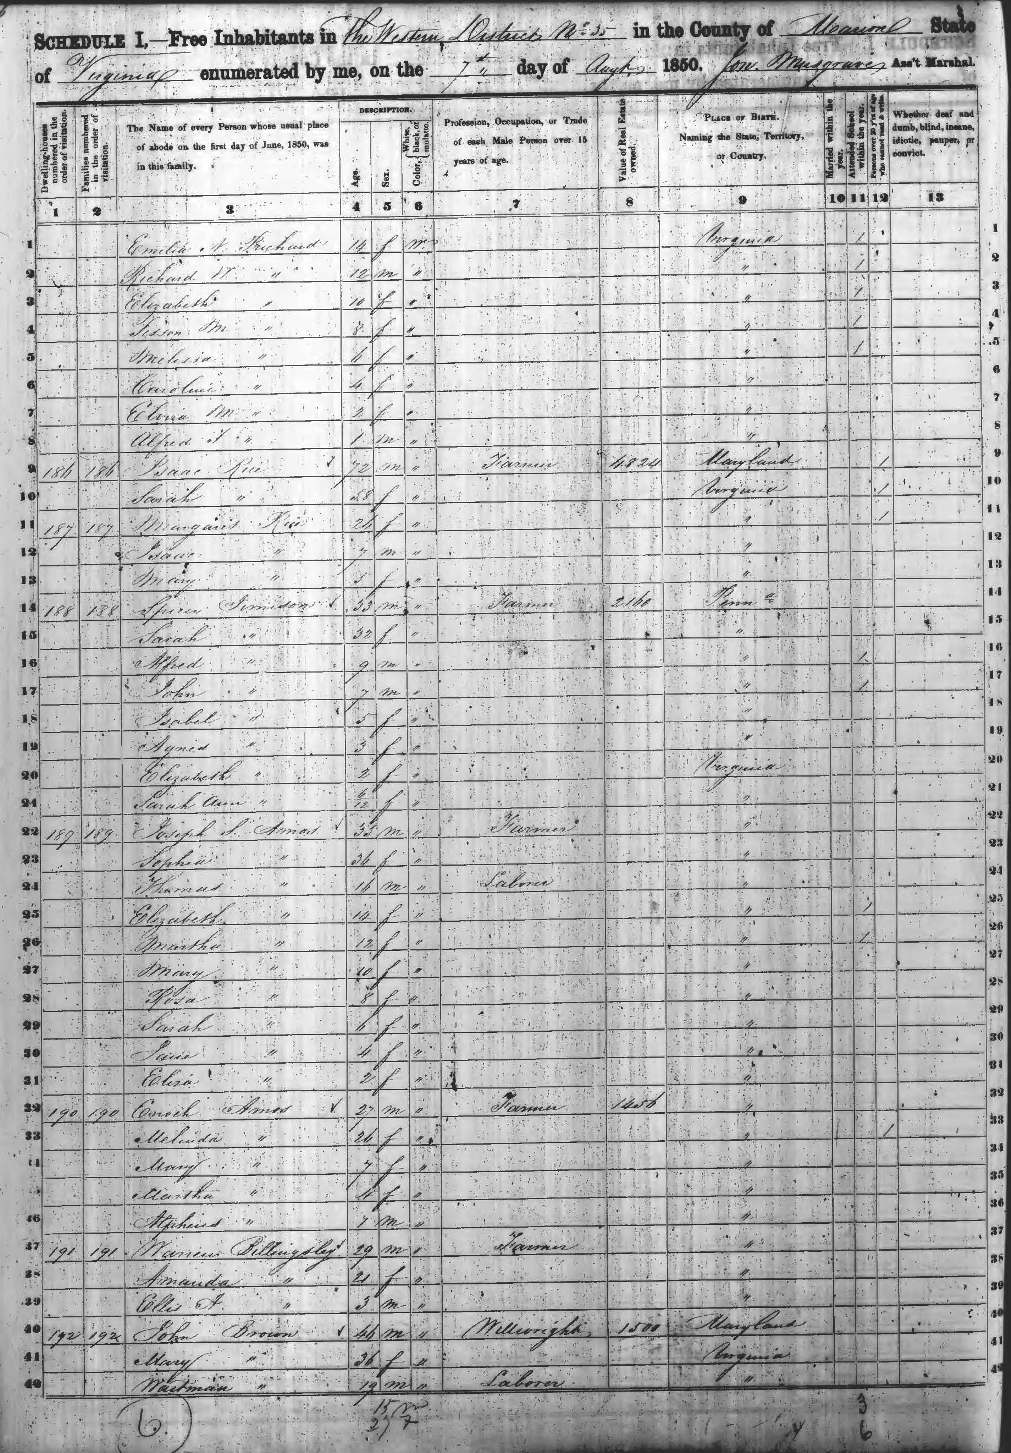 SCHEDULE I,—Free Inhabitants in The Western District No 35 in the County of Marion State
of Virginia enumerated by me, on the 7th day of Augt 1850. Jon Musgrave Ass't Marshal.
Dwelling-houses numbered in the order of visitation.
Families numbered in the order of visitation.
The Name of every Person whose usual place of abode on the first day of June, 1850, was in this family.
DESCRIPTION.
Age.
Sex.
Color, White, black, or mulatto.
Profession, Occupation, or Trade of each Male Person over 15 years of age.
Value of Real Estate owned.
PLACE OF BIRTH. Naming the State, Territory, or Country.
Married within the year.
Attended School within the year.
Persons over 20 y'rs of age who cannot read & write.
Whether deaf and dumb, blind, insane, idiotic, pauper, or convict.
1 2 3 4 5 6 7 8 9 10 11 12 13
1 Emilia N. Prichard 14 f w Virginia 1
2 Richard W " 12 m " " 1
3 Elizabeth " 10 f " " 1
4 M " 8 f " " 1
5 Melissa " 6 f " " 1
6 Caroline " 4 f " "
7 M " 2 f " "
8 Alfred T " 1 m " "
9 186 186 Isaac Rice 72 m " Farmer 4824 Maryland 1
10 Sarah " f " Virginia 1
11 187 187 Rice 26 f " " 1
12 Isaac " 7 m " "
13 Mary " 5 f " "
14 188 188 33 m " Farmer 2160 Penn a
15 Sarah " 32 f " "
16 Alfred " 9 m " " 1
17 John " 7 m " " 1
18 Isabel " 5 f " "
19 Agnes " 3 f " "
20 Elizabeth " 2 f " Virginia
21 Sarah Ann " 6/12 f " "
22 187 189 Joseph S. Amos 35 m " Farmer "
23 Sophia " 36 f " "
24 Thomas " 16 m " Laborer "
25 Elizabeth " 14 f " " 1
26 Martha " 12 f " " 1
27 Mary " 10 f " "
28 Rosa " 8 f " "
29 Sarah " 6 f " "
30 Jane " 4 f " "
31 Eliza " 2 f " "
32 190 190 Enoch Amos 27 m " Farmer 1456 "
33 Melinda " 26 f " " 1
Mary " 7 f " "
Martha " 4 f " "
Alpheus " 1 m " "
37 191 191 Billingsley 29 m " Farmer "
38 Amanda " 21 f " "
39 Ellis A. " 3 m " "
40 192 192 John Brown 46 m " Millwright 1500 Maryland
41 Mary " 36 f " Virginia
42 Waitman " 19 m " Laborer "
6.
15 m
27 f
3
6